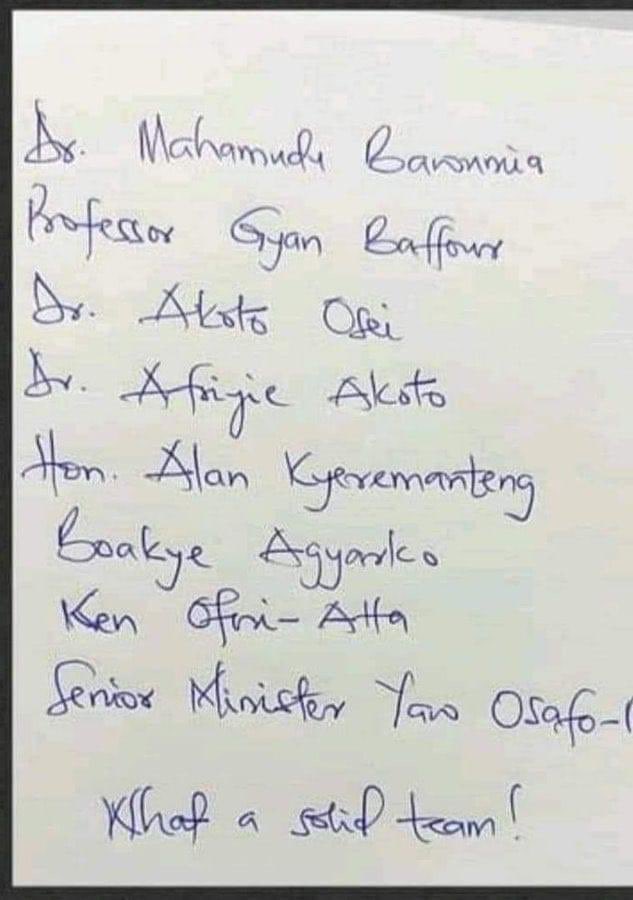 Dr. Mahamudu Bawumia
Professor Gyan Baffour
Dr. Akoto Osei
Dr. Afriyie Akoto
Hon. Alan Kyeremanteng
Boakye Agyarko
Ken Ofori-Atta
Senior Minister Yaw Osafo-
What a solid team!